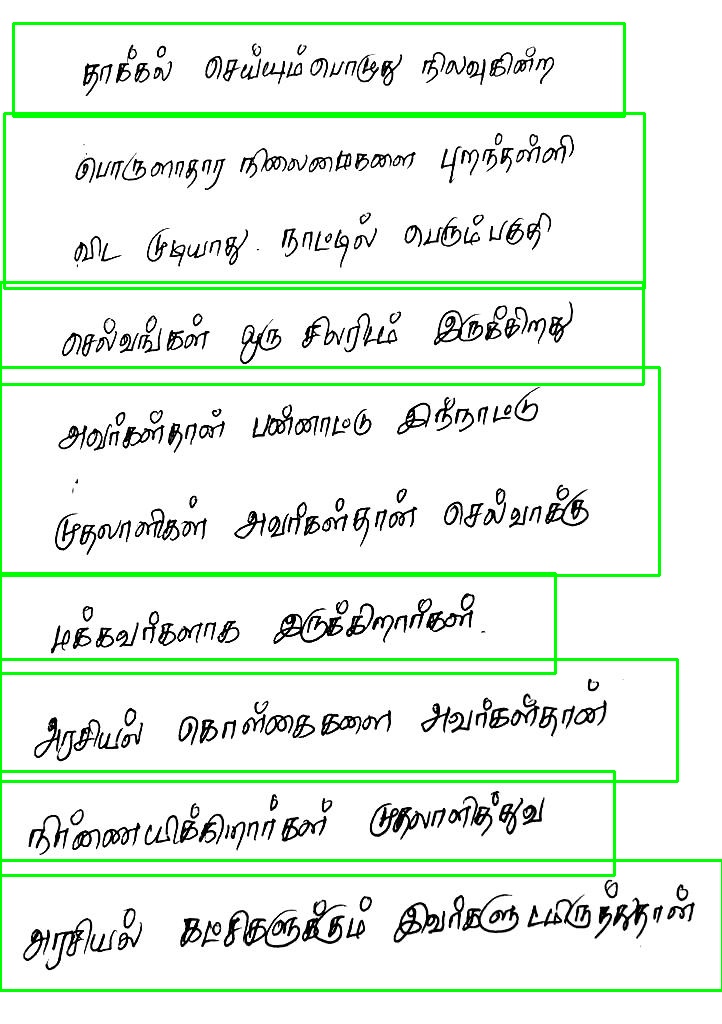 தாக்கல் செய்யும்பொழுது நிலவுகின்ற
பொருளாதார நிலைமைகளை புறந்தள்ளி
விட முடியாது. நாட்டில் பெரும்பகுதி
செல்வங்கள் ஒரு சிலரிடம் இருக்கிறது
அவர்கள்தான் பன்னாட்டு இந்நாட்டு
முதலாளிகள் அவர்கள்தான் செல்வாக்கு
மிக்கவர்களாக இருக்கிறார்கள்.
அரசியல் கொள்கைகளை அவர்கள்தான்
நிர்ணையிக்கிறார்கள் முதலாளித்துவ
அரசியல் கட்சிகளுக்கும் இவர்களுடமிருந்துதான்